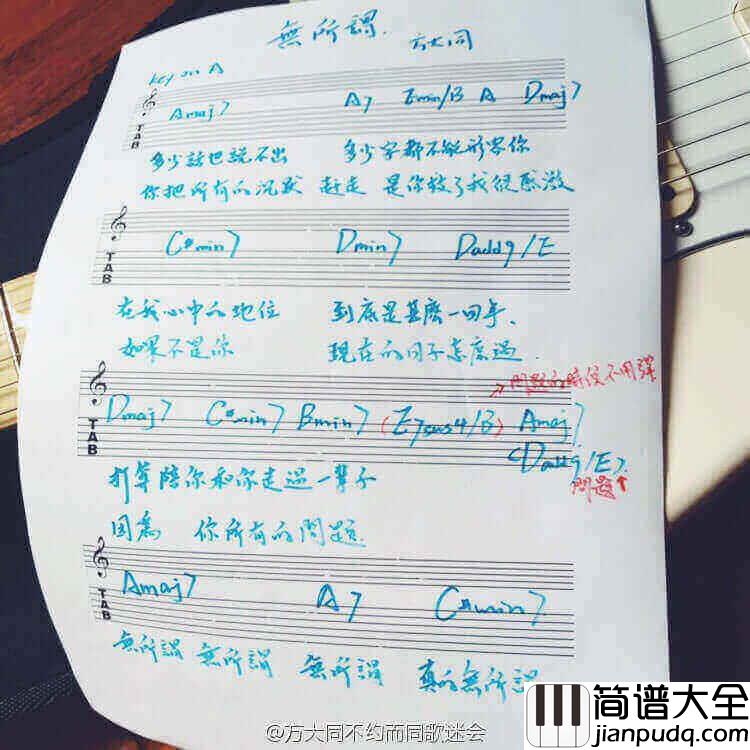 無所謂. 方大同
key on A
Amaj7 A7 Emin/B A Dmaj7
TAB
多少話也説不出 多少字都不能形容你
你把所有的沉默 赶走 是你救了我很感激
C#min7 Dmin7 Dadd9/E
TAB
在我心中的地位 到底是甚麼一回事.
如果不是你 現在的日子怎麼過.
→問題的時侯不用彈
Dmaj7 C#min7 Bmin7 (E7sus4/B) Amaj7
TAB
(Dadd9/E).
問題↑
打算陪你和你走過一輩子
因為 你所有的問題.
Amaj7 A7 C#min7
TAB
無所謂 無所謂 無所謂 真的無所謂
@方大同不约而同歌迷会
简谱大全
jianpudq.com